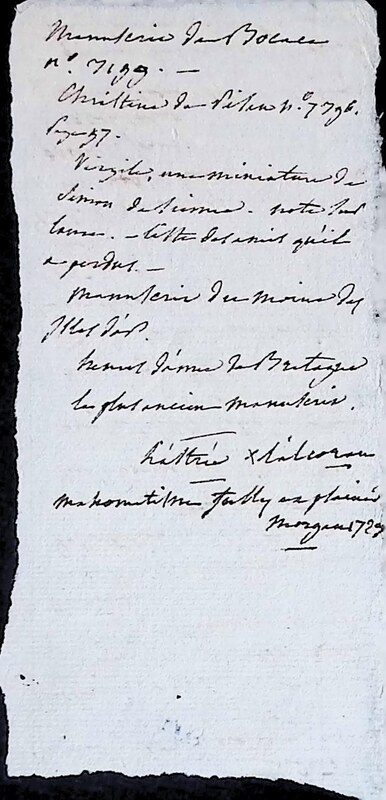 Manuscrit de Bocace
n.º 7199. —
Chrêstine de Pisan n.º 7396.
page 57.
Virgile, une miniature de
Simon de Sienne. note sur
Laure. — liste des amis qu'il
a perdus. —
manuscrit du moine des
Isles d'or.
heures d'anne de Bretagne
le plus ancien manuscrit.
l'astrée x l'alcoran
mahometisme fully explained
Morgan 1723